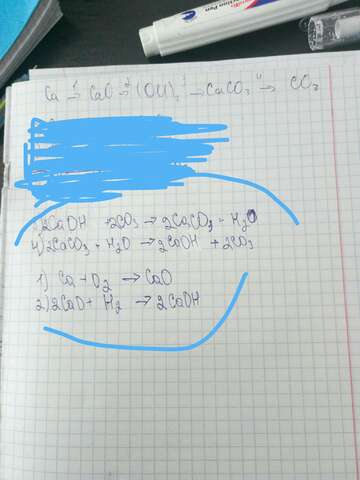 Ca 1→ CaO 2→ (OH)₂ 3→ CaCO₃ 4→ CO₂
3)2CaOH +2CO₃ → 2CaCO₃ + H₂O
4)2CaCO₃ + H₂O → 2CaOH + 2CO₃
1) Ca + O₂ → CaO
2)2CaO + H₂ → 2CaOH